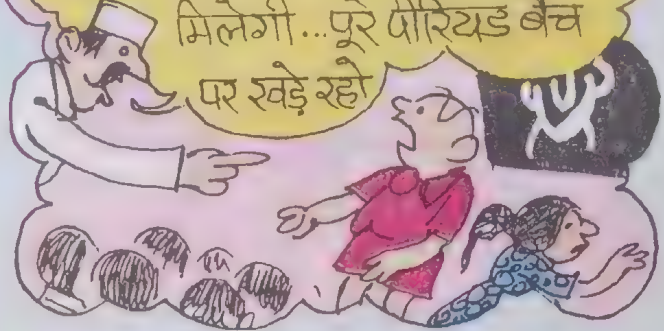 मिलेगी...पूरे पीरियड बेंच
पर खड़े रहो